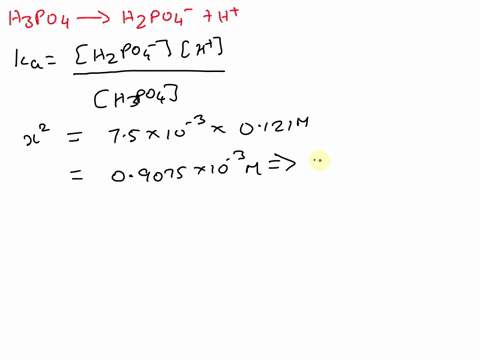 H3PO4 → H2PO4⁻ + H⁺
Ka = [H2PO4⁻] [H⁺]
[H3PO4]
x² = 7.5 × 10⁻³ × 0.121 M
= 0.9075 × 10⁻³ M ⇒